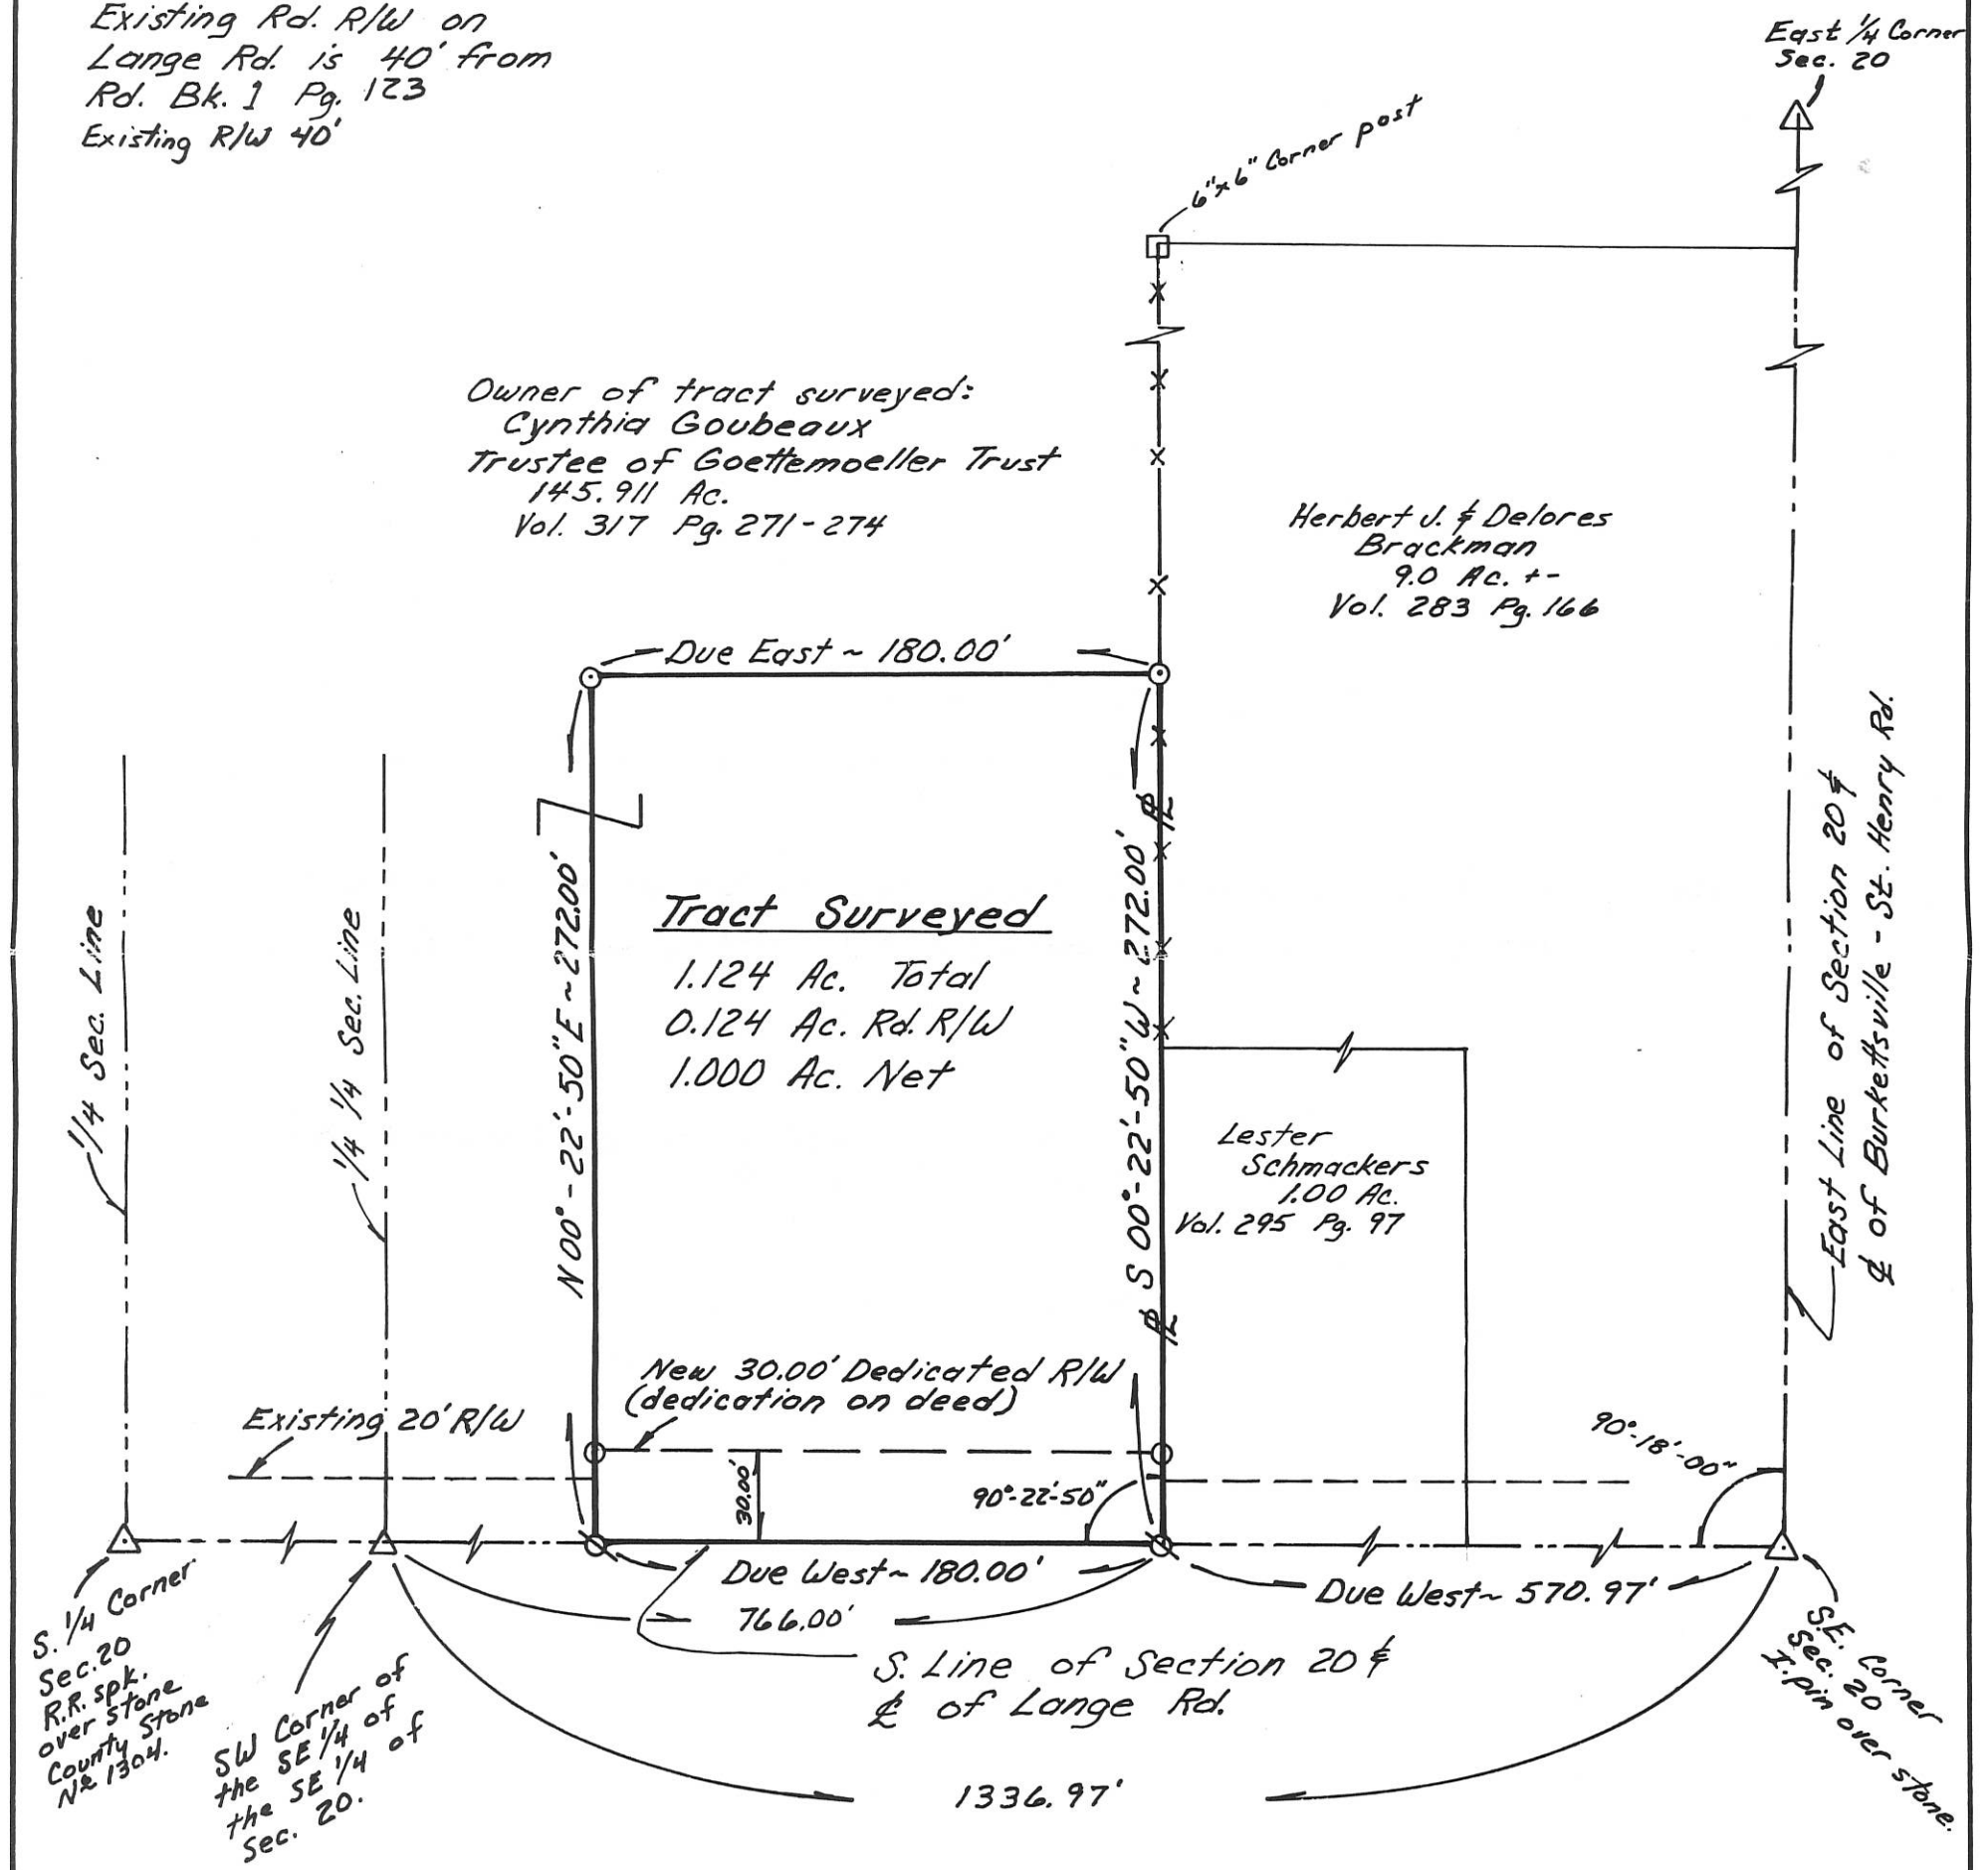 Existing Rd. R/W on
Lange Rd. is 40' from
Rd. Bk. 1 Pg. 123
Existing R/W 40'
East 1/4 Corner
Sec. 20
6"x6" Corner post
Owner of tract surveyed:
Cynthia Goubeaux
Trustee of Goettemoeller Trust
145.911 Ac.
Vol. 317 Pg. 271-274
Herbert J. & Delores
Brackman
9.0 Ac. +-
Vol. 283 Pg. 166
Due East ~ 180.00'
N 00°-22'-50" E ~ 272.00'
S 00°-22'-50" W ~ 272.00'
PL
PL
Tract Surveyed
1.124 Ac. Total
0.124 Ac. Rd. R/W
1.000 Ac. Net
1/4 Sec. Line
1/4 1/4 Sec. Line
East Line of Section 20 &
℄ of Burkettsville - St. Henry Rd.
Lester
Schmackers
1.00 Ac.
Vol. 295 Pg. 97
New 30.00' Dedicated R/W
(dedication on deed)
Existing 20' R/W
30.00'
90°-22'-50"
90°-18'-00"
Due West ~ 180.00'
Due West ~ 570.97'
766.00'
S. Line of Section 20 &
℄ of Lange Rd.
1336.97'
S. 1/4 Corner
Sec. 20
R.R. spk.
over stone
County Stone
No 1304.
SW Corner of
the SE 1/4 of
the SE 1/4 of
Sec. 20.
S.E. Corner
Sec. 20
I. pin over stone.